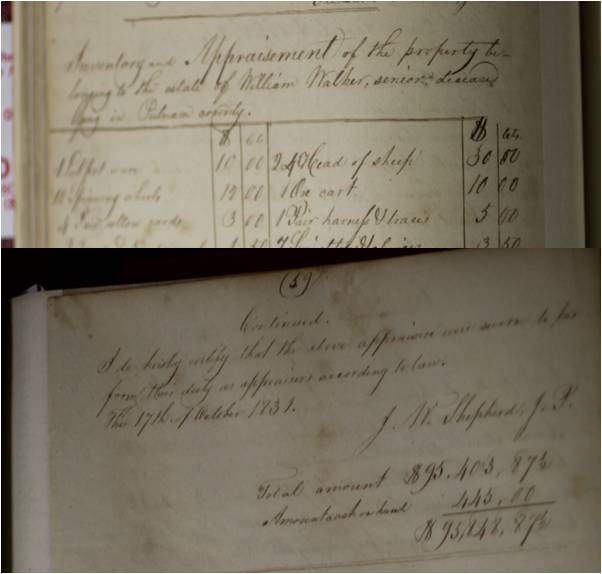 Inventory and Appraisement of the property be-
longing to the estate of William Walker, senior, deceased
lying in Putnam county.
$ cts $ cts.
1 Lot pot ware 10 00 24 Head of sheep 30 00
10 Spinning wheels 12 00 1 Ox cart 10 00
4 Pair cotton cards 3 00 1 Pair harness & traces 5 00
3 50
(59)
Continued.
I do hereby certify that the above appraisers were sworn to per
form their duty as appraisers according to law.
This 17th of October 1831.
J. W. Shepherd, J. P.
Total amount $95,403,87½
Amount cash on hand 445,00
$95,848,87½